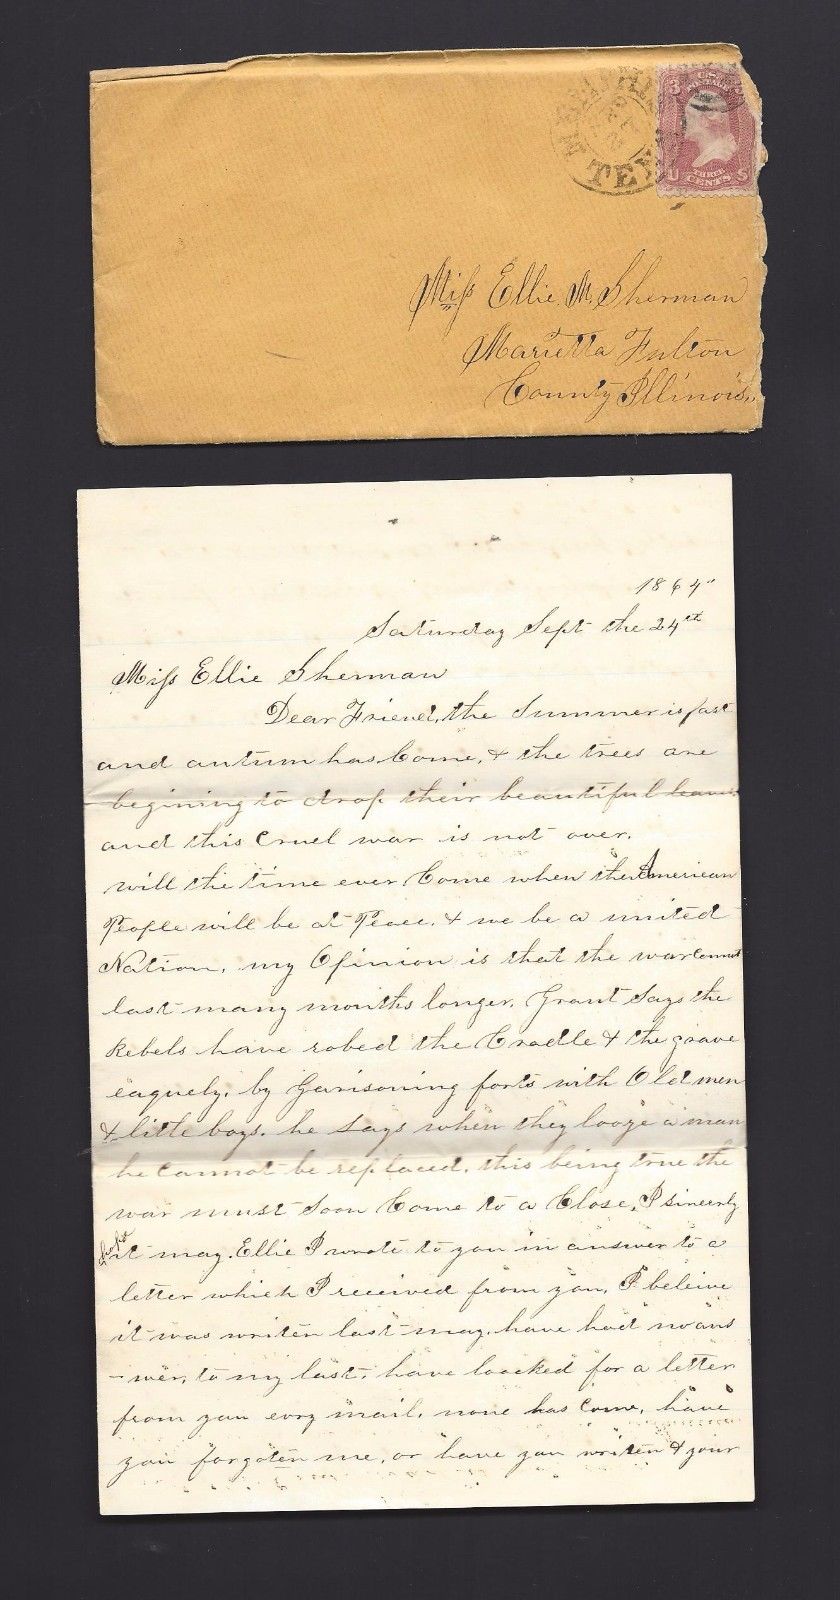 TEN
3
U.S.
POSTAGE
U S
THREE
CENTS
Miss Ellie M. Sherman
Marietta Fulton
County Illinois,,
1864"
Saturday Sept the 24th
Miss Ellie Sherman
Dear Friend, the Summer is past
and autum has Come, & the trees are
begining to drop their beautiful leaves
and this Cruel war is not over.
will the time ever Come when the American
People will be at Peace, & we be a united
Nation, my Opinion is that the war cannot
last many months longer. Grant Says the
Rebels have robed the Cradle & the grave
eaquely. by Garisoning forts with Old men
& little boys. he Says when they looze a man
he cannot be replaced. this being true the
war must Soon Come to a Close, I sincerly
hope
it may. Ellie I wrote to you in answer to a
letter which I received from you, I beleive
it was writen last may, have had no ans
-wer, to my last, have loocked for a letter
from you evry mail, none has come, have
you forgoten me, or have you writen & your